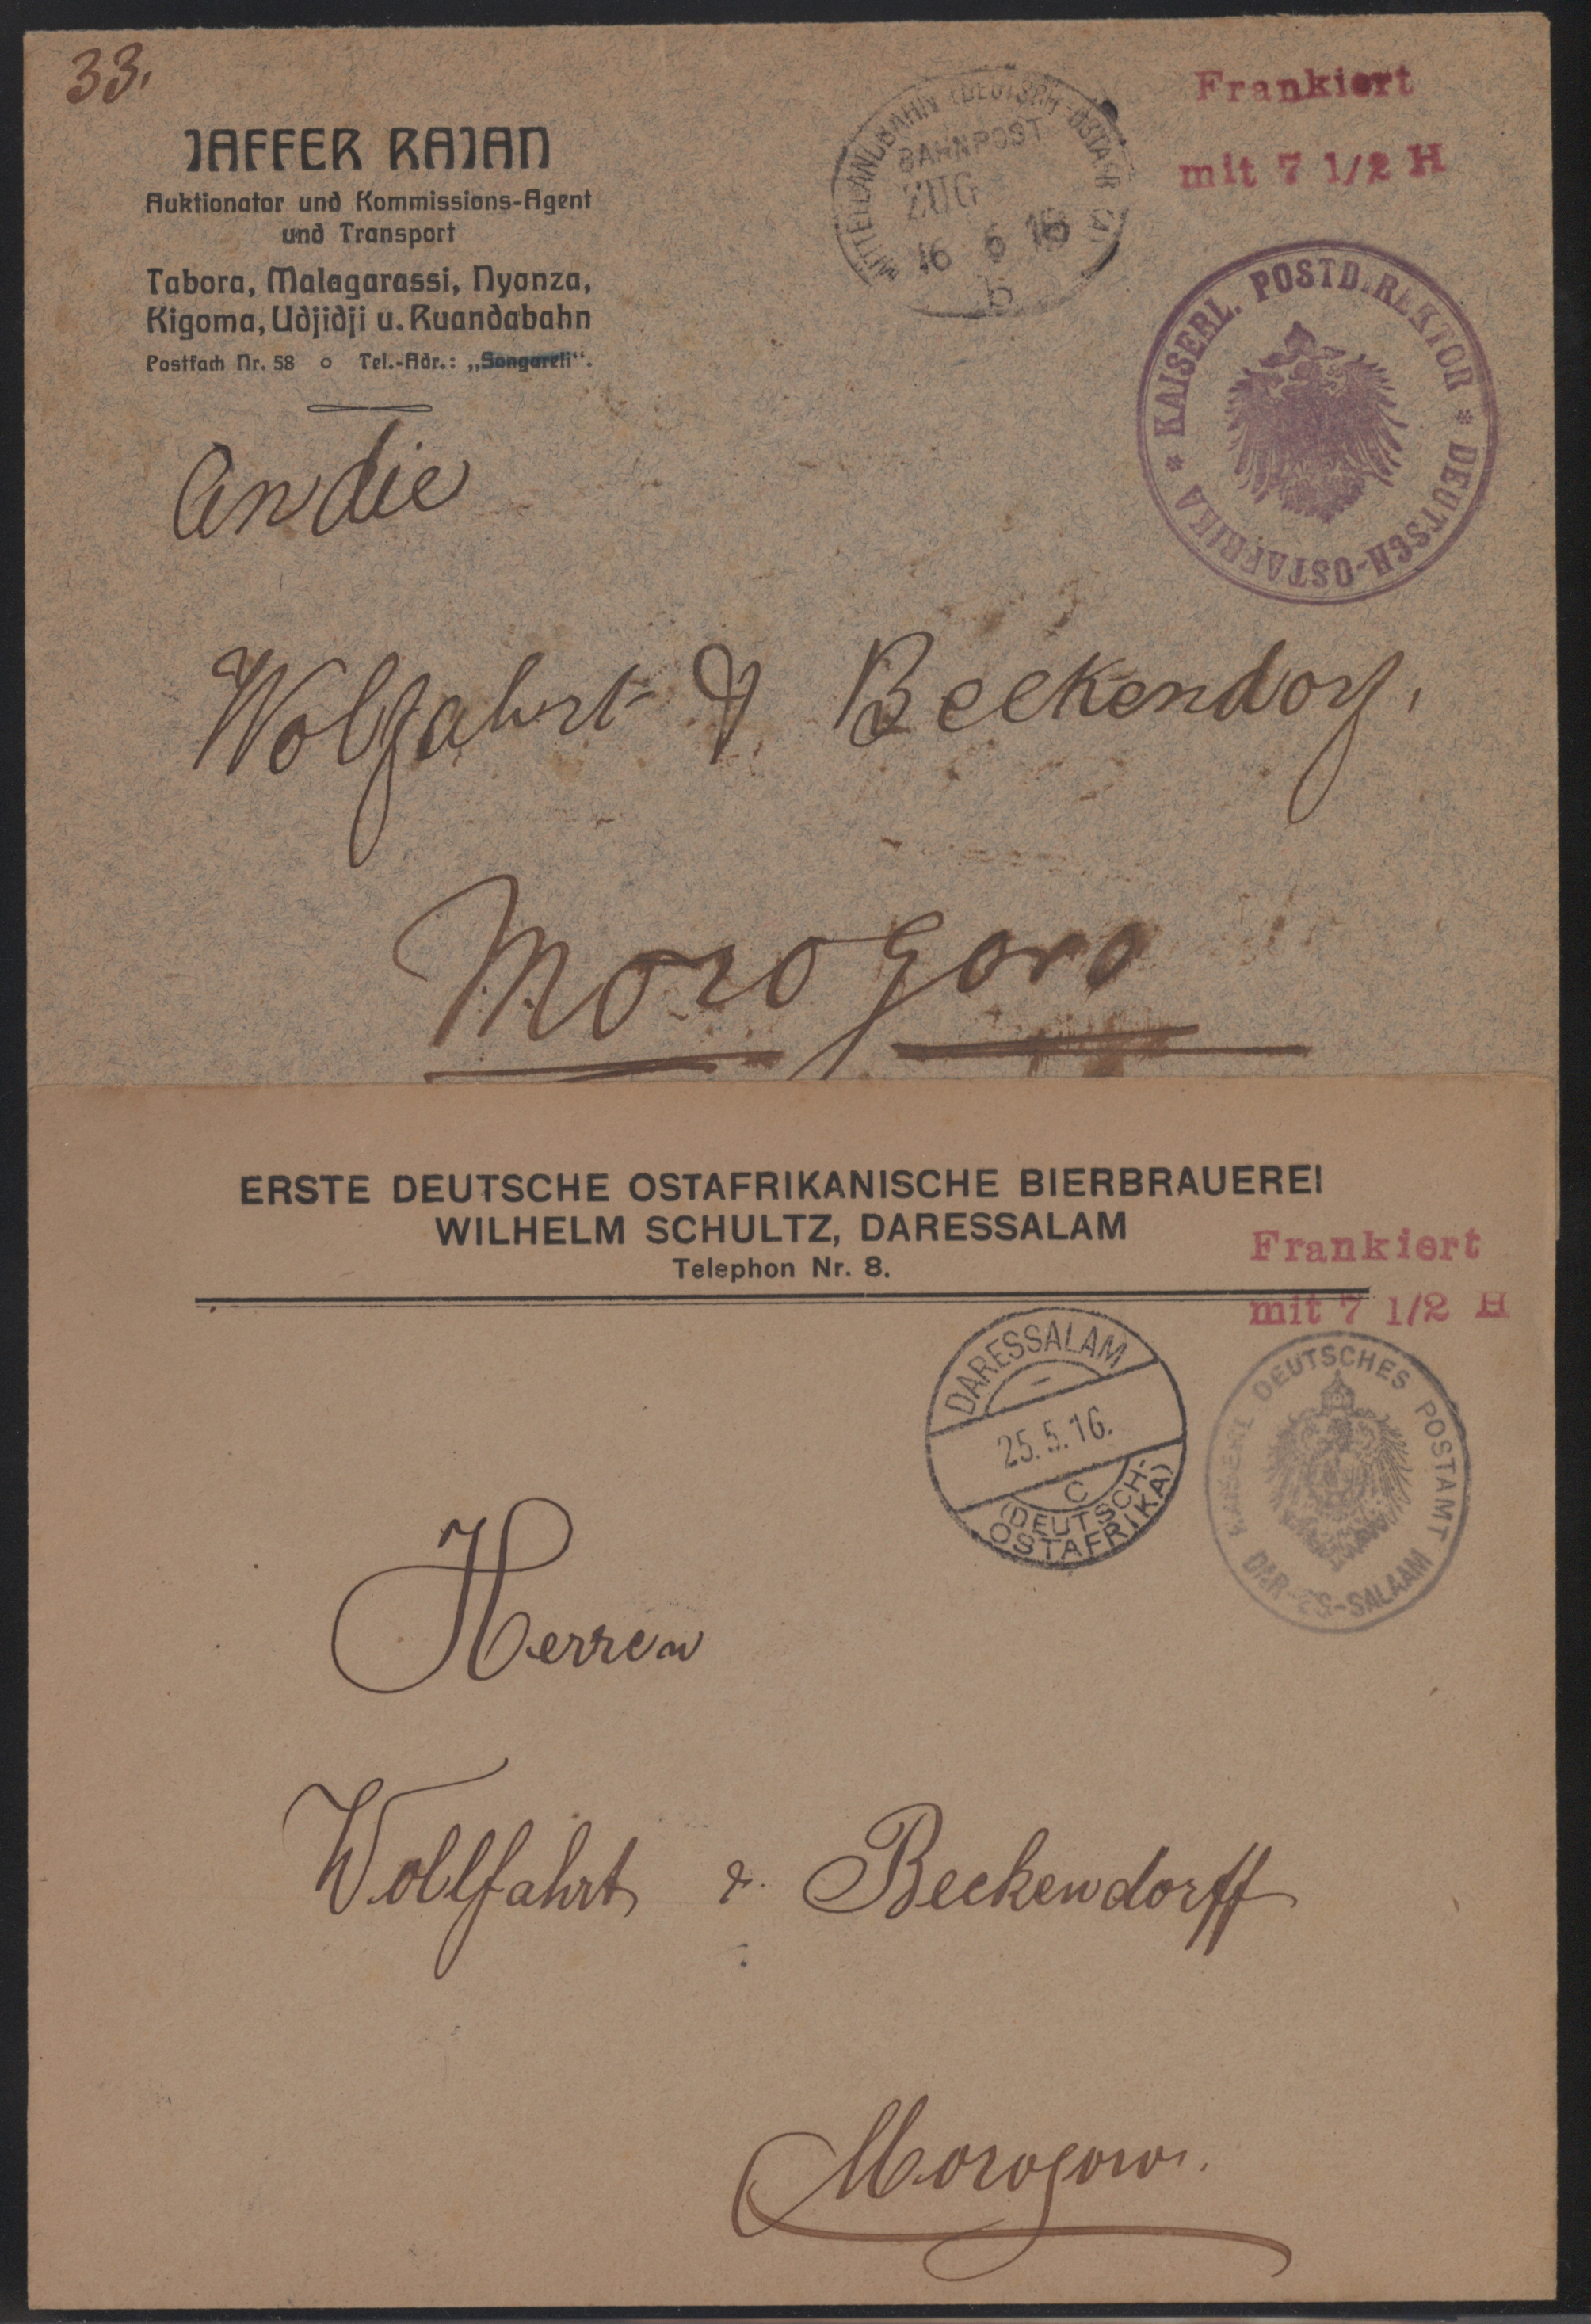 33.
JAFFER RAJAN
Auktionator und Kommissions-Agent
und Transport
Tabora, Malagarassi, Nyanza,
Kigoma, Udjidji u. Ruandabahn
Postfach Nr. 58 o Tel.-Adr.: „Songoreli“.
MITTELLANDBAHN (DEUTSCH-OSTAFRIKA)
BAHNPOST
ZUG
16 6 16
b
Frankiert
mit 7 1/2 H
* KAISERL. POSTDIREKTOR * DEUTSCH-OSTAFRIKA
An die
Wolfahrt & Beckendorf,
Morogoro
ERSTE DEUTSCHE OSTAFRIKANISCHE BIERBRAUEREI
WILHELM SCHULTZ, DARESSALAM
Telephon Nr. 8.
Frankiert
mit 7 1/2 H
DARESSALAM
25.5.16.
C
(DEUTSCH-
OSTAFRIKA)
KAISERL DEUTSCHES POSTAMT
DAR-ES-SALAAM
Herren
Wollfahrt & Beckendorff
Morogoro.